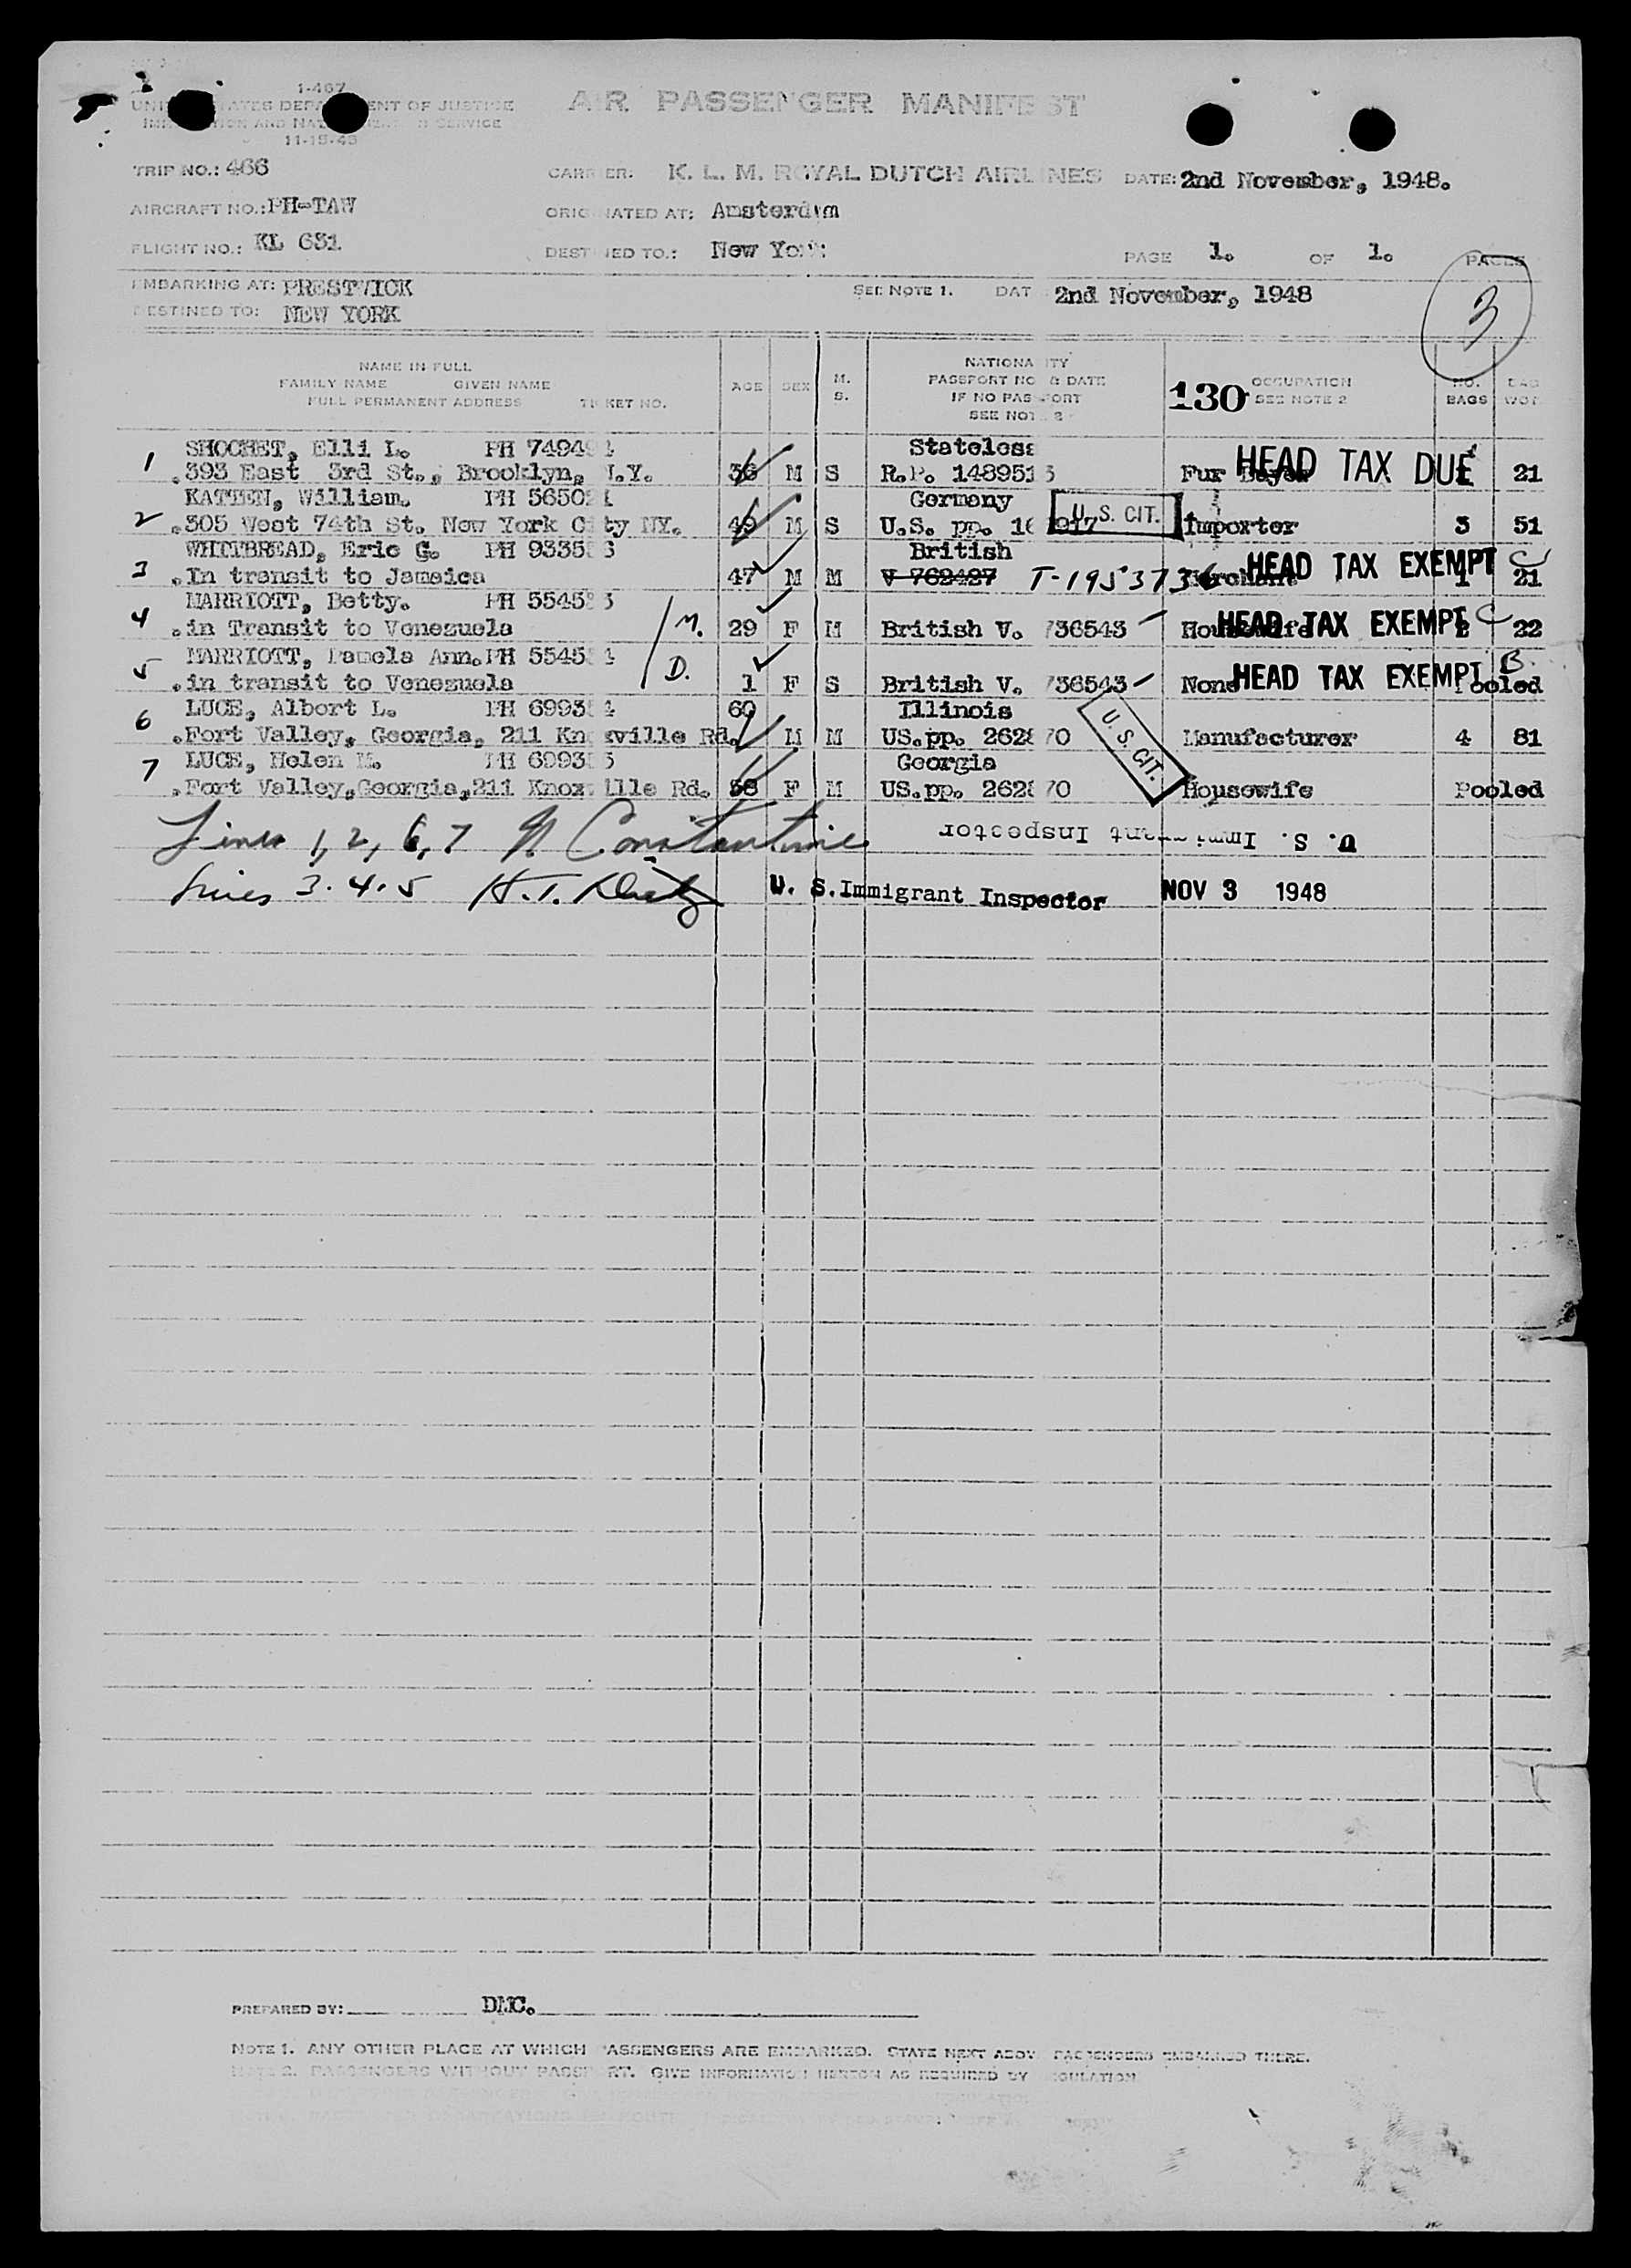 1-467
UNITED STATES DEPARTMENT OF JUSTICE
AIR PASSENGER MANIFEST
IMMIGRATION AND NATURALIZATION SERVICE
11-15-43
TRIP NO.: 466 CARRIER: K. L. M. ROYAL DUTCH AIRLINES DATE: 2nd November, 1948.
AIRCRAFT NO.: PH-TAW ORIGINATED AT: Amsterdam
FLIGHT NO.: KL 631 DESTINED TO.: New York PAGE 1. OF 1. PAGES
3
EMBARKING AT: PRESTWICK SEE NOTE 1. DAT 2nd November, 1948
DESTINED TO: NEW YORK
NAME IN FULL
FAMILY NAME GIVEN NAME
FULL PERMANENT ADDRESS TICKET NO.
AGE SEX M. S.
NATIONALITY
PASSPORT NO. & DATE
IF NO PASSPORT
SEE NOTE 2
130 OCCUPATION
SEE NOTE 2
NO. BAGS
1 SHOCHET, Elli L. PH 7494 4 Stateless
.393 East 3rd St., Brooklyn, N.Y. 36 M S R.P. 148951 Fur Buyer HEAD TAX DUE 21
2 KATTEN, William. PH 5650 Germany
.305 West 74th St. New York City NY. 49 M S U.S. pp. 16 917 U. S. CIT. Importer 3 51
3 WHITBREAD, Eric G. PH 9335 6 British
.In transit to Jamaica 47 M M V 762427 T-1953736 Merchant HEAD TAX EXEMPT C 1 21
4 MARRIOTT, Betty. PH 5545 3
.in Transit to Venezuela M. 29 F M British V. 736543 Housewife HEAD TAX EXEMPT C 22
5 MARRIOTT, Pamela Ann. PH 5545 4
.in transit to Venezuela D. 1 F S British V. 736543 None HEAD TAX EXEMPT B. Pooled
6 LUCE, Albert L. PH 6993 4 60 Illinois
.Fort Valley, Georgia, 211 Knoxville Rd. M M US.pp. 262 70 U. S. CIT. Manufacturer 4 81
7 LUCE, Helen M. PH 6993 5 Georgia
.Fort Valley,Georgia,211 Knoxville Rd. 58 F M US.pp. 262 70 Housewife Pooled
Lines 1, 2, 6, 7 N Constantine U. S. Immigrant Inspector
Lines 3. 4. 5 H. T. U. S. Immigrant Inspector NOV 3 1948
PREPARED BY: DMC.
NOTE 1. ANY OTHER PLACE AT WHICH PASSENGERS ARE EMBARKED. STATE NEXT ABOVE PASSENGERS EMBARKED THERE.
NOTE 2. PASSENGERS WITHOUT PASSPORT. GIVE INFORMATION HEREON AS REQUIRED BY REGULATION